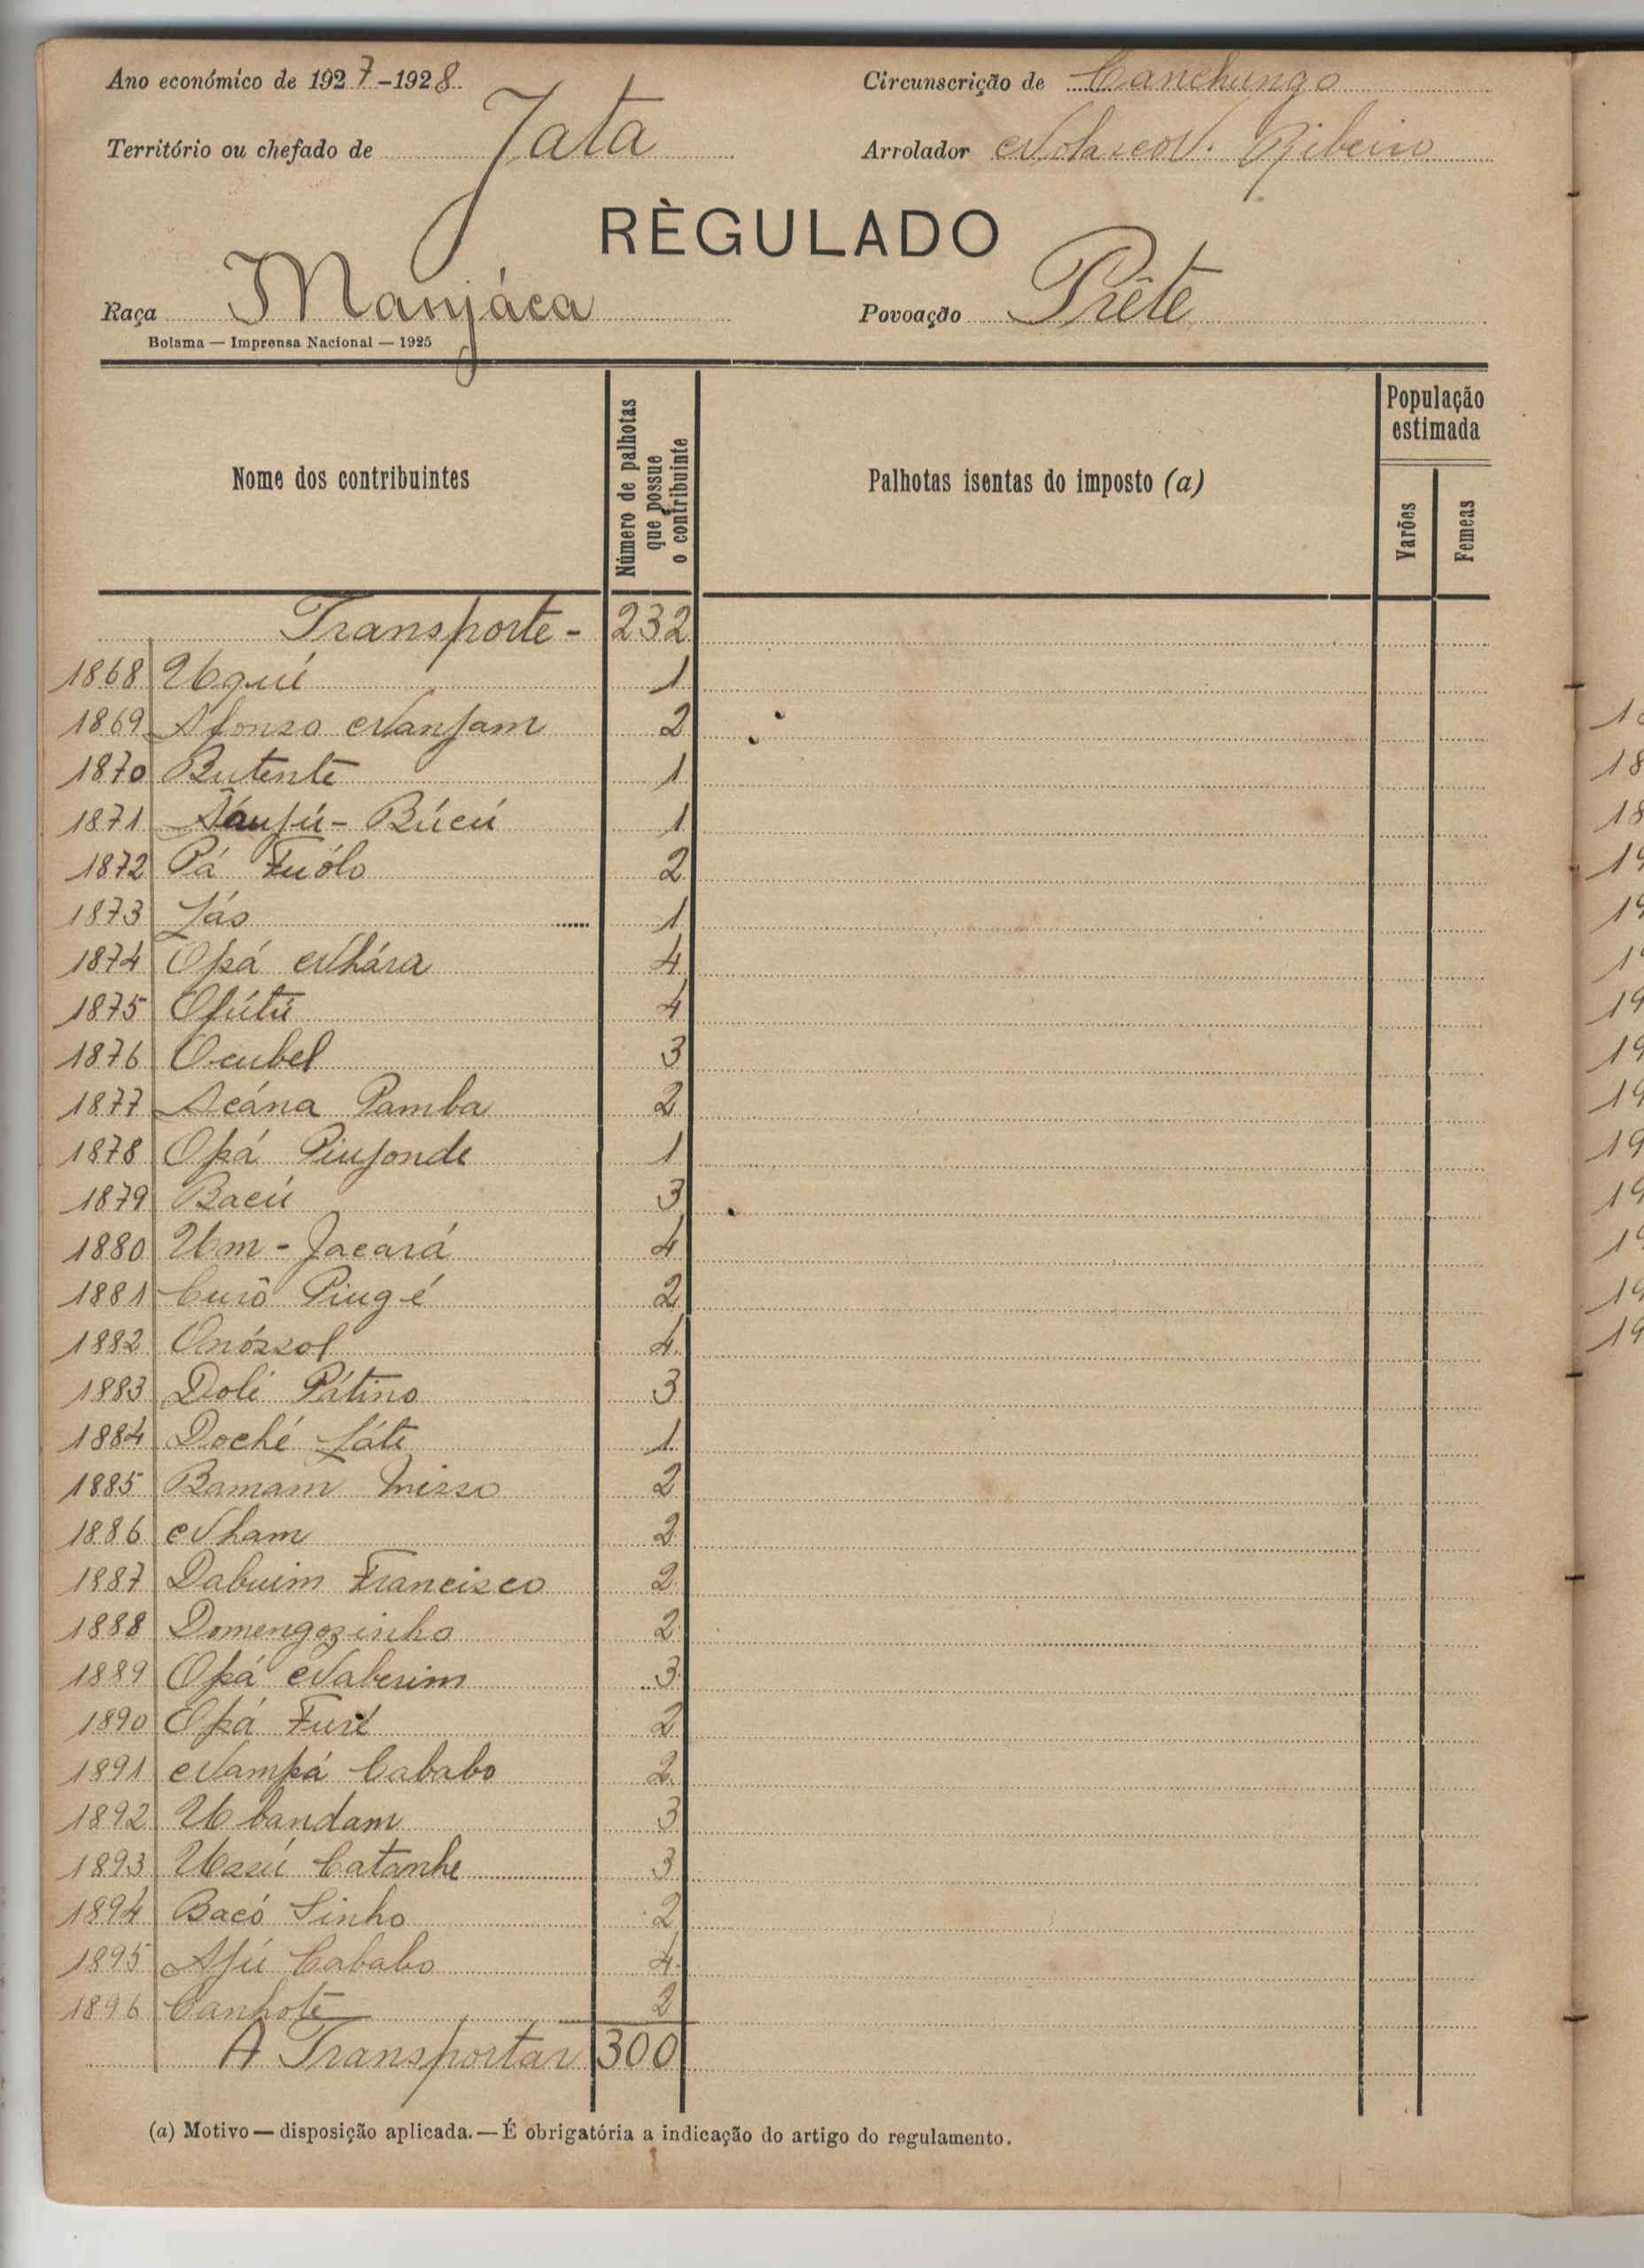 Ano económico de 1927-1928
Circunscrição de Canchungo
Território ou chefado de Jata
Arrolador Nolasco N. Ribeiro
RÈGULADO
Raça Manjáca
Povoação Prête
Bolama — Imprensa Nacional — 1925
Nome dos contribuintes
Número de palhotas que possue o contribuinte
Palhotas isentas do imposto (a)
População estimada
Varões
Femeas
Transporte - 232
1868 Uqui 1
1869 Afonso Nanjam 2
1870 Butente 1
1871 Búcú 1
1872 Pá Fuólo 2
1873 1
1874 Opá Nhára 4
1875 Ofútú 4
1876 Ocubel 3
1877 Acána Pamba 2
1878 Opá Piujonde 1
1879 Bacú 3
1880 Um - Jacará 4
1881 Curô Piugé 2
1882 Onóssol 4
1883 Doli Pátino 3
1884 Doché Játe 1
1885 Bamam 2
1886 Nham 2
1887 Dabuim Francisco 2
1888 Domengozinho 2
1889 Opá Naberim 3
1890 Opá Furé 2
1891 Nampá Cababo 2
1892 Ubandam 3
1893 Catanhe 3
1894 Bacó Sinho 2
1895 Afú Cababo 4
1896 Canhoté 2
A Transportar 300
(a) Motivo — disposição aplicada. — É obrigatória a indicação do artigo do regulamento.